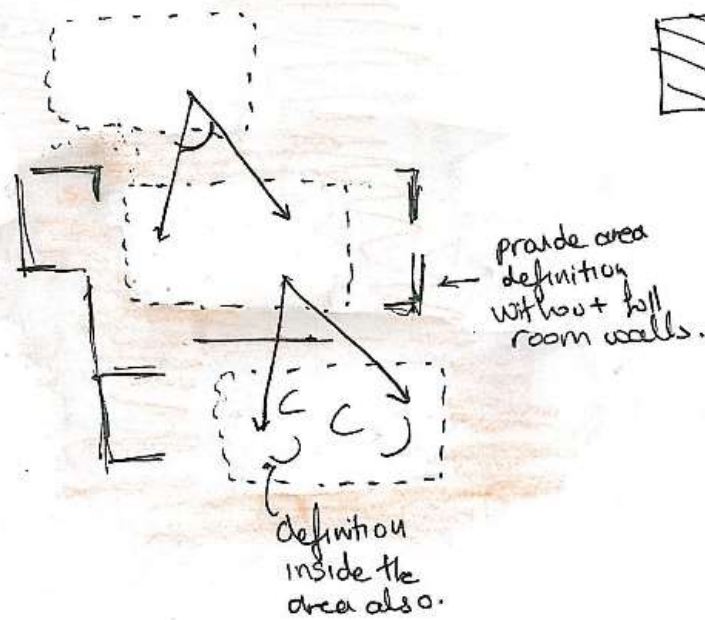 provide area
definition
without full
room walls.
definition
inside the
area also.